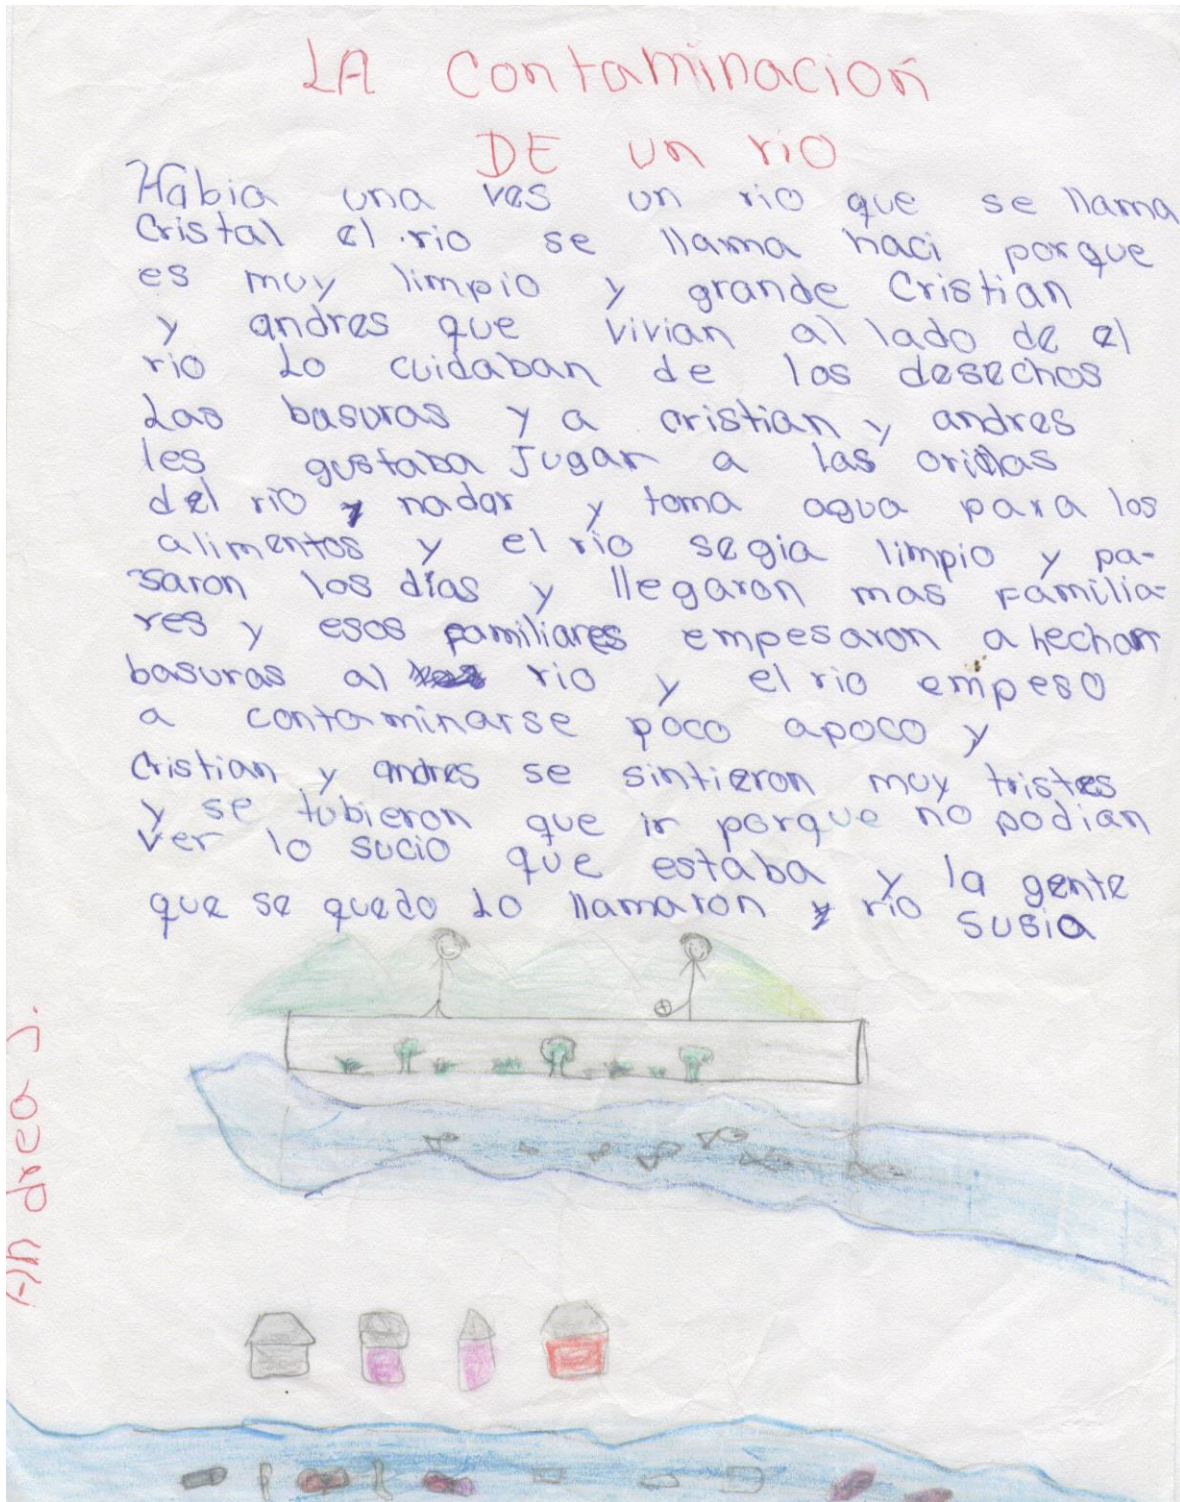 LA Contaminación
DE un rio
Habia una ves un rio que se llama
Cristal el rio se llama haci porque
es muy limpio y grande Cristian
y andres que vivian al lado de el
rio Lo cuidaban de los desechos
Las basuras y a cristian y andres
les gustaba Jugar a las orillas
del rio y nadar y toma agua para los
alimentos y el rio segia limpio y pa-
saron los días y llegaron mas Familia-
res y esos familiares empesaron a hechar
basuras al rio y el rio empeso
a contaminarse poco apoco y
Cristian y andres se sintieron muy tristes
y se tubieron que ir porque no podian
ver lo sucio que estaba y la gente
que se quedo Lo llamaron rio susia
Andrea J.